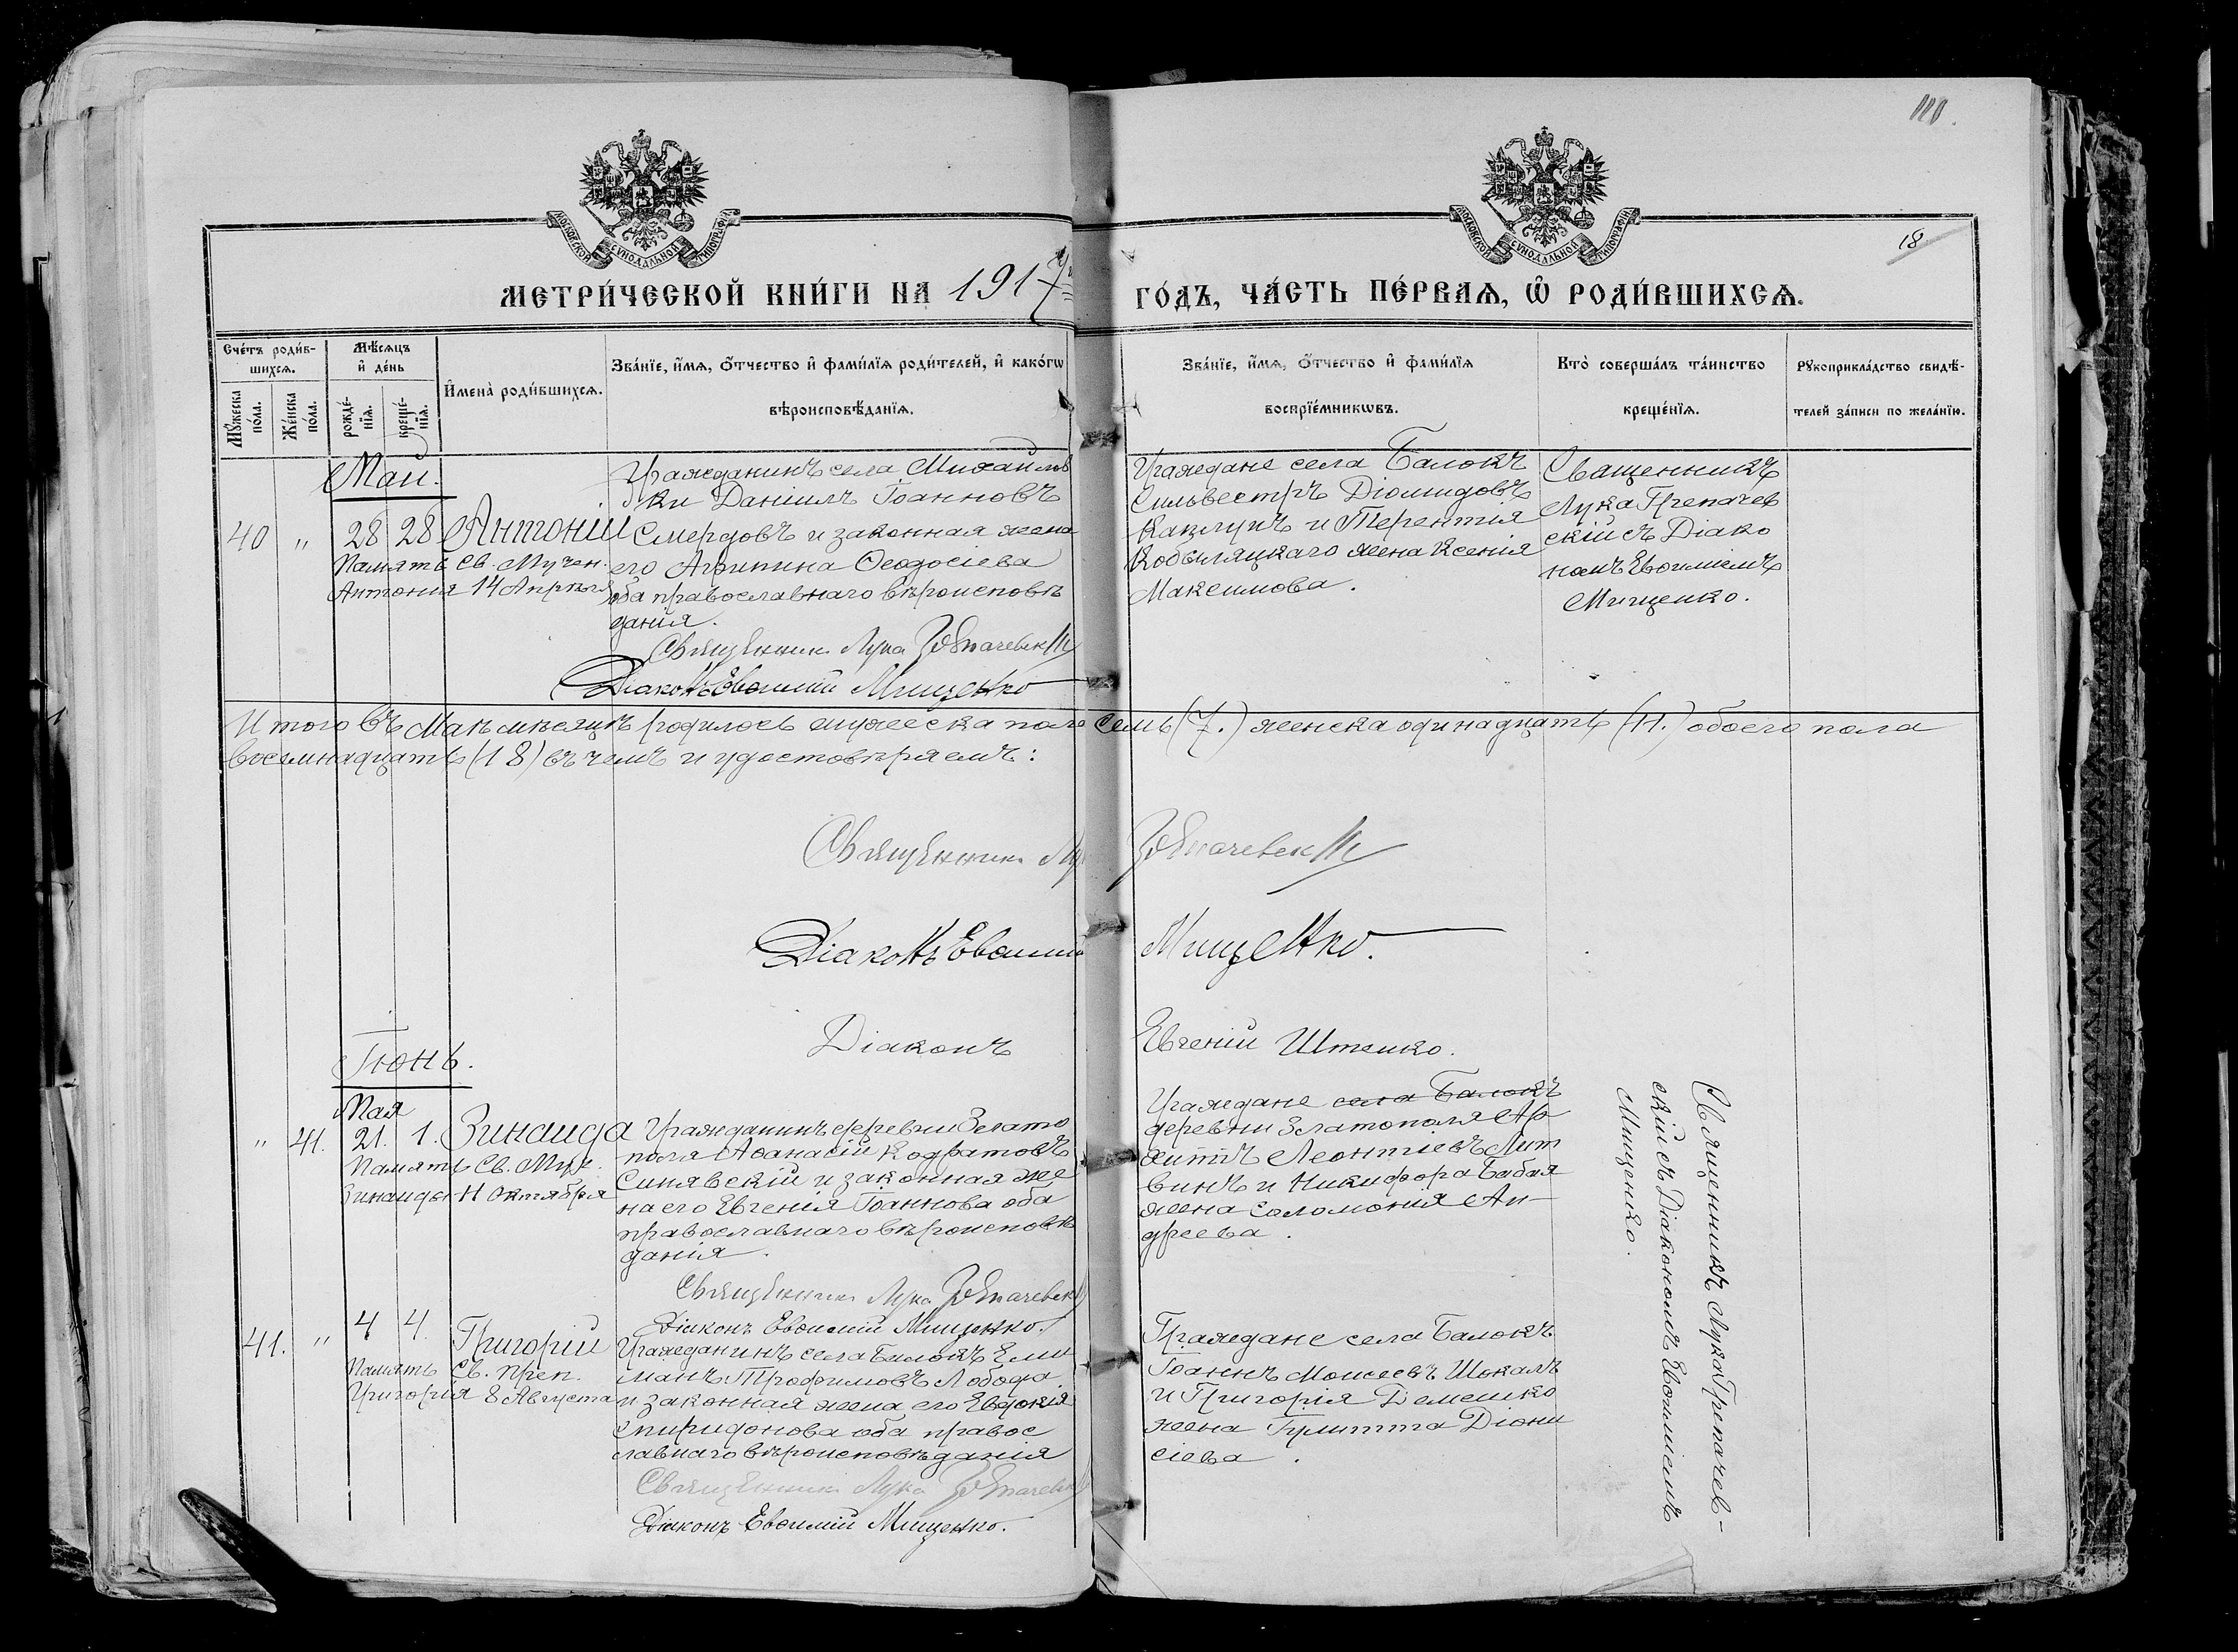 110.
МОСКОВСКОЙ СУНОДАЛЬНОЙ ТИПОГРАФІИ
МОСКОВСКОЙ СУНОДАЛЬНОЙ ТИПОГРАФІИ
18
МЕТРИ́ЧЕСКОЙ КНИ́ГИ НА 1917
ГО́ДЪ, ЧА́СТЬ ПЕ́РВАѦ, Ѡ҆ РОДИ́ВШИХСѦ.
Сче́тъ роди́в-
шихсѧ.
Мꙋ́жеска
по́ла.
Же́нска
по́ла.
Мѣ́сѧцъ
и҆ де́нь
рожде́-
нїѧ.
креще́-
нїѧ.
И҆мена̀ роди́вшихсѧ.
Зва́нїе, и҆́мѧ, ѻ҆́тчество и҆ фами́лїѧ роди́телей, и҆ како́гѡ
вѣроисповѣ́данїѧ.
Зва́нїе, и҆́мѧ, ѻ҆́тчество и҆ фами́лїѧ
воспрїе́мникѡвъ.
Кто̀ соверша́лъ та́инство
креще́нїѧ.
Рꙋкоприкла́дство свидѣ́-
телей за́писи по жела́нїю.
Май.
40 " 28 28 Антоній
Память Св. Мучен.
Антонія 14 Апрѣля
Гражданинъ села Михайлов
ки Даніилъ Іоанновъ
Смердовъ и законная жена
его Агрипина Ѳеодосіева
оба православнаго вѣроисповѣ
данія.
Священникъ Лука Грепачевскій
Діаконъ Евѳимій Мищенко
Граждане села Балокъ
Сильвестръ Діомидовъ
Кацлупъ и Терентія
Кобыляцкаго жена Ксенія
Максимова.
Священникъ
Лука Грепачев
скій съ Діако
номъ Евѳиміемъ
Мищенко.
Итого въ Маѣ мѣсяцѣ родилось мужеска пола семь (7.) женска одинадцать (11.) обоего пола
восемнадцать (18) въ чемъ и удостовѣряемъ:
Священникъ Лука Грепачевскій
Діаконъ Евѳимій Мищенко.
Діаконъ Евгеній Штенко.
Іюнь.
Мая
" 41. 21. 1. Зинаида
Память Св. Муч.
Зинаиды 11 Октября
Гражданинъ деревни Златo
поля Аѳанасій Кодратовъ
Синявскій и законная же
на его Евгенія Іоаннова оба
православнаго вѣроисповѣ
данія.
Священникъ Лука Грепачевскій
Діаконъ Евѳимій Мищенко.
Граждане села Балокъ
деревни Златополя Ар
хипъ Леонтіевъ Лит
винъ и Никифора Бабая
жена Соломонія Ан-
дреева.
Священникъ Лука Грепачев-
скій съ Діакономъ Евѳиміемъ
Мищенко.
41. " 4 4. Григорій
Память Св. Преп.
Григорія 8 Августа
Гражданинъ села Балокъ Еми
ліанъ Трофимовъ Лобода
и законная жена его Евдокія
Спиридонова оба правос
лавнаго вѣроисповѣданія
Священникъ Лука Грепачевскій
Діаконъ Евѳимій Мищенко.
Граждане села Балокъ
Іоаннъ Моисеевъ Шокалъ
и Григорія Демешко
жена Іулитта Діони
сіева.